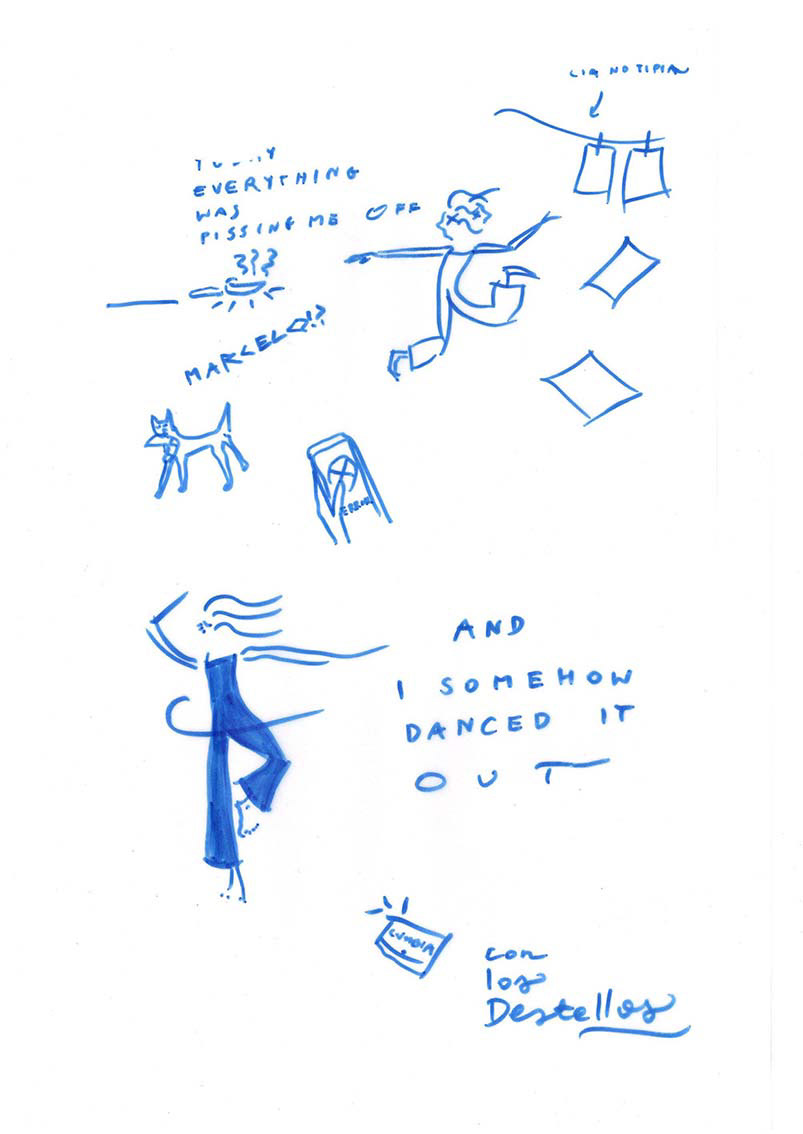 EVERYTHING
WAS
PISSING ME OFF
MARCELO!?
ERROR
AND
I SOMEHOW
DANCED IT
OUT
CUMBIA
con
los
Destellos